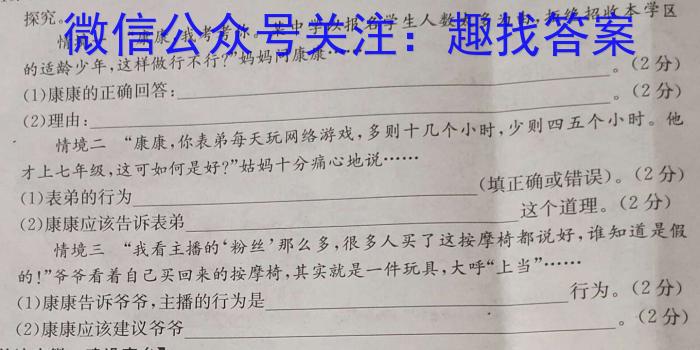 探究。
微信公众号关注：趣找答案
情境一 “康康，我考考你，某中学以报名学生人数太多为由，拒绝招收本学区
的适龄少年，这样做行不行？”妈妈问康康……
(1)康康的正确回答：。(2分)
(2)理由：。(2分)
情境二 “康康，你表弟每天玩网络游戏，多则十几个小时，少则四五个小时。他
才上七年级，这可如何是好？”姑妈十分痛心地说……
(1)表弟的行为(填正确或错误)。(2分)
(2)康康应该告诉表弟这个道理。(2分)
情境三 “我看主播的‘粉丝’那么多，很多人买了这按摩椅都说好，谁知道是假
的！”爷爷看着自己买回来的按摩椅，其实就是一件玩具，大呼“上当”……
(1)康康告诉爷爷，主播的行为是行为。(2分)
(2)康康应该建议爷爷。(2分)